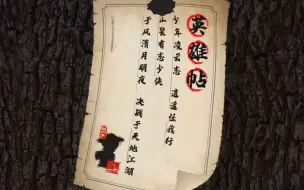 英雄帖
少年凌云志 逍遥任我行
正冀有志少侠
于风清月明夜 决战于天地江湖